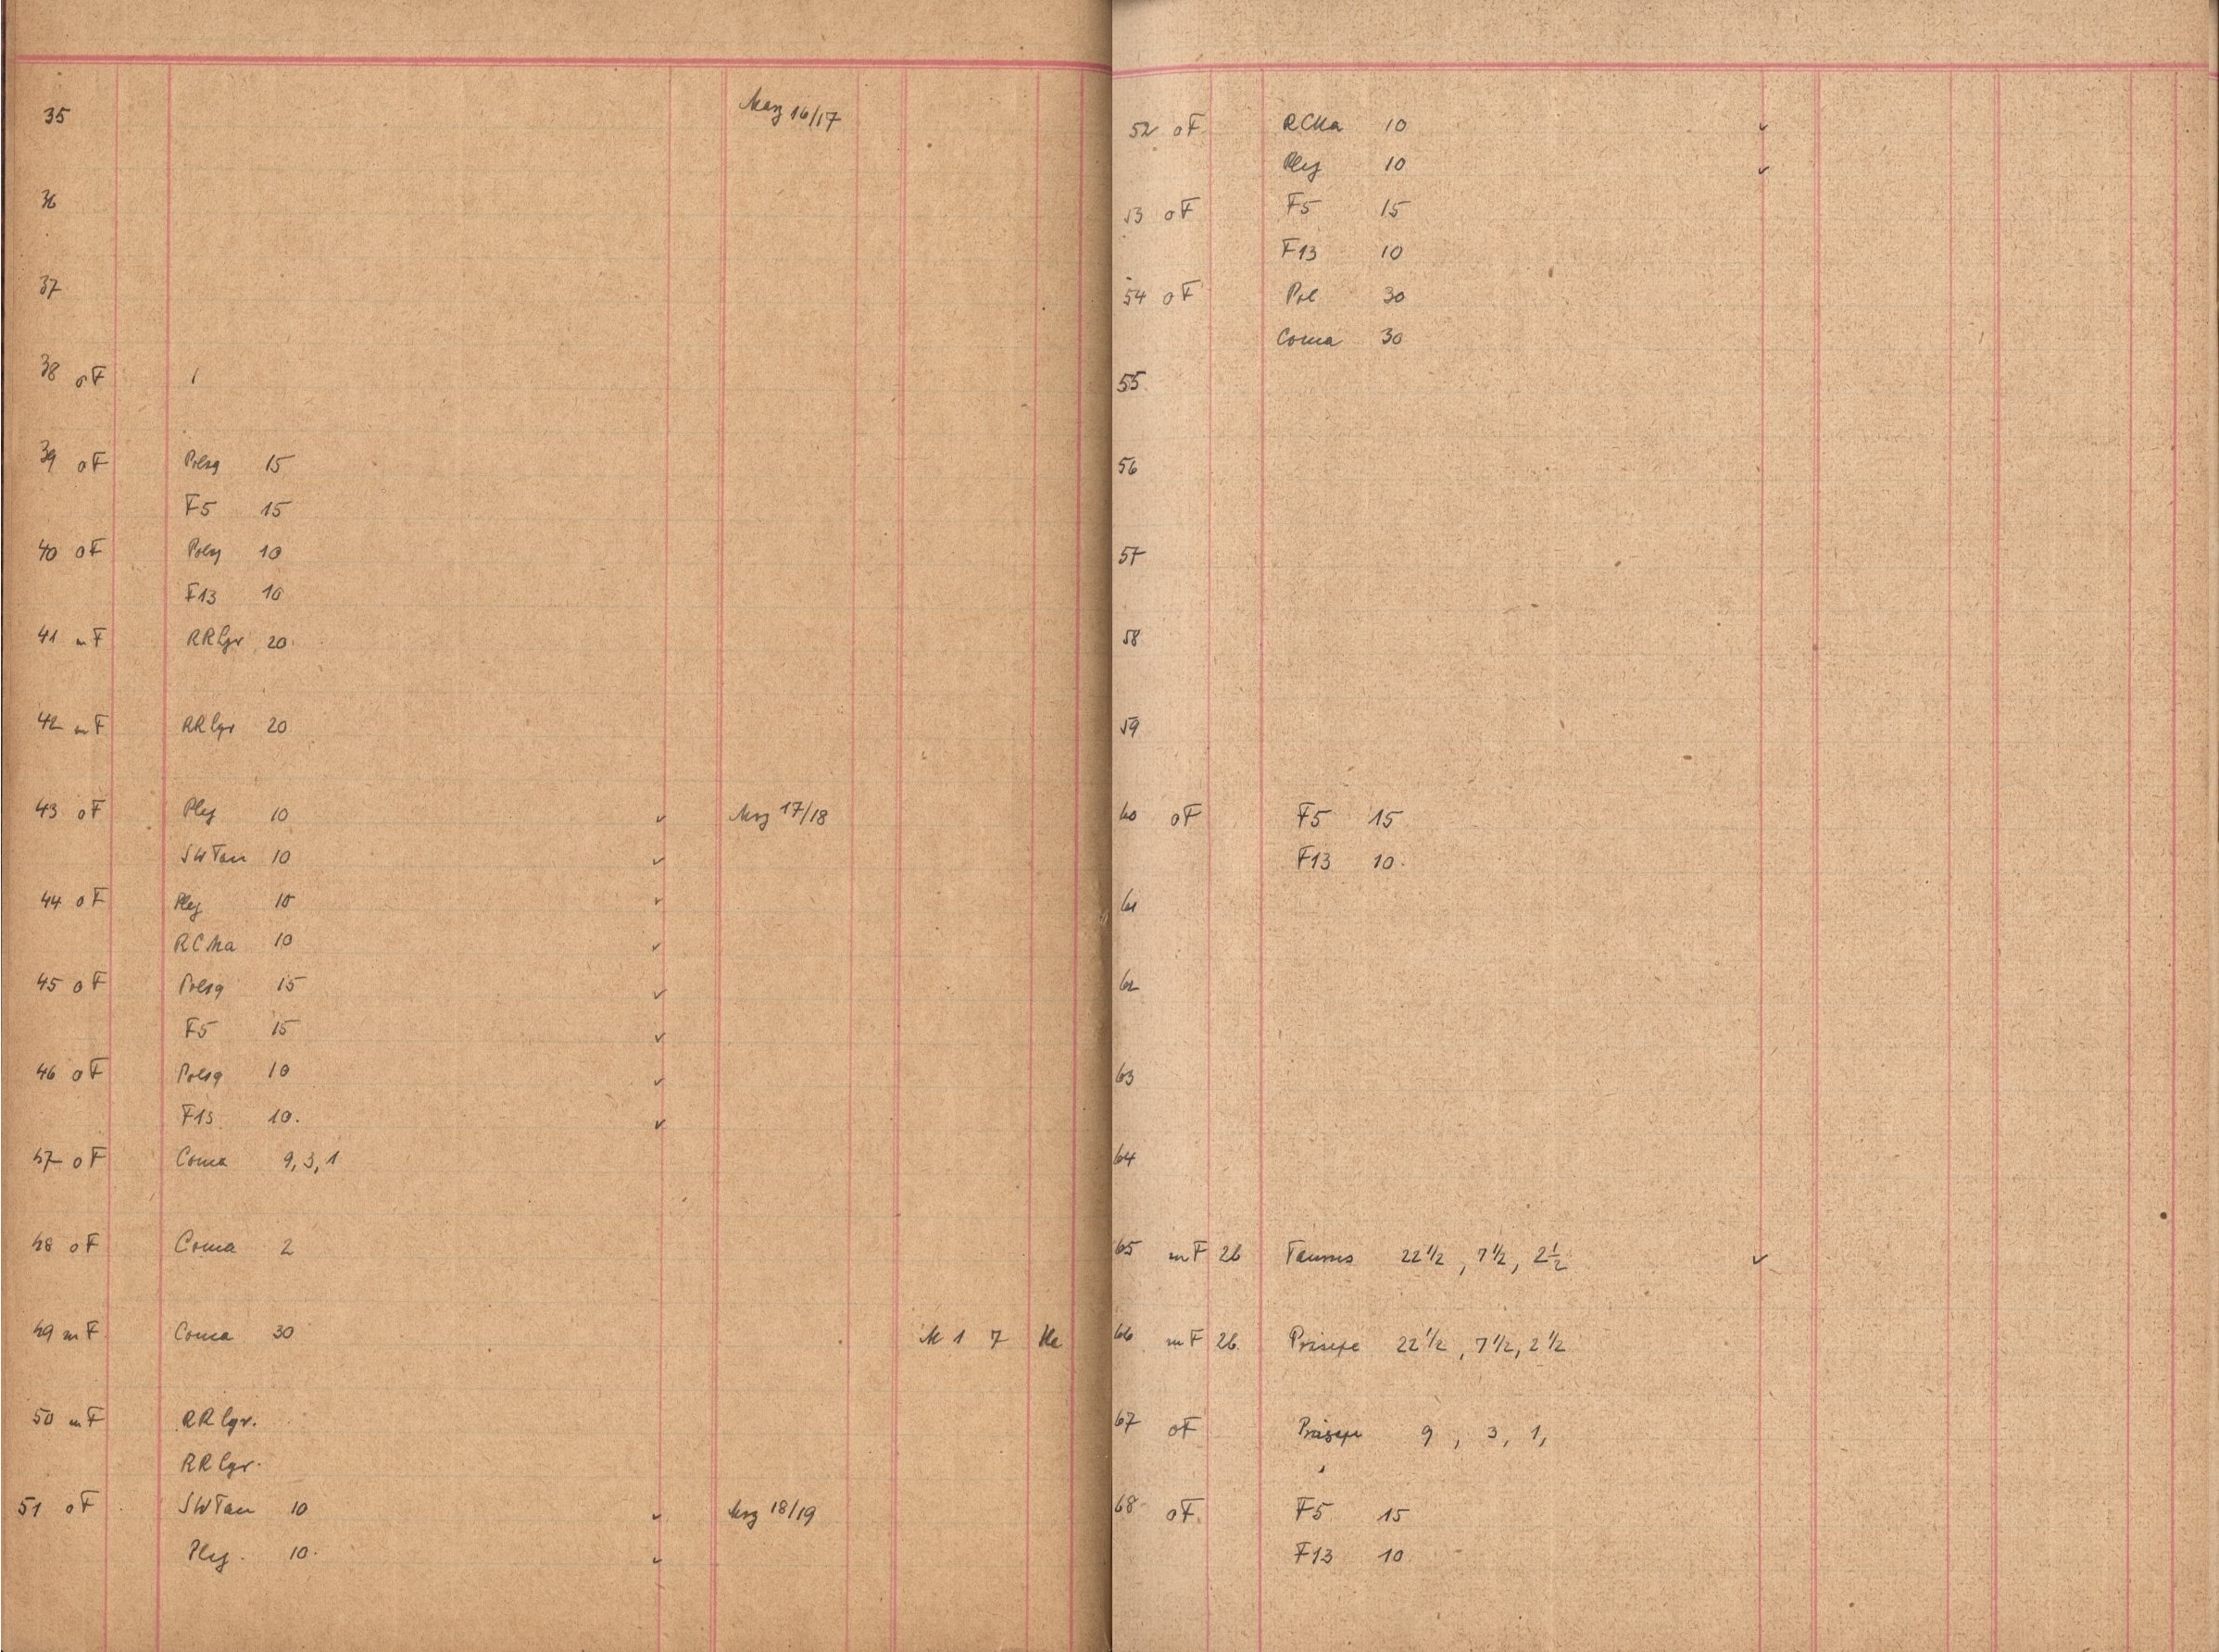 35 März 16/17
36
37
38 oF
39 oF Polsq 15
F5 15
40 oF Polsq 10
F13 10
41 mF RR Lyr 20
42 mF RR Lyr 20
43 oF Plej 10 ✓ März 17/18
SW Tau 10 ✓
44 oF Plej 10 ✓
RCMa 10 ✓
45 oF Polsq 15 ✓
F5 15 ✓
46 oF Polsq 10 ✓
F13 10. ✓
47 oF Coma 9, 3, 1
48 oF Coma 2
49 mF Coma 30 M 1 7
50 mF RR Lyr.
RR Lyr.
51 oF SW Tau 10 ✓ März 18/19
Plej. 10. ✓
52 oF RCMa 10 ✓
Plej 10 ✓
53 oF F5 15
F13 10
54 oF Pol 30
Coma 30
55
56
57
58
59
60 oF F5 15
F13 10.
61
62
63
64
65 mF 26 Taurus 22 1/2, 7 1/2, 2 1/2 ✓
66 mF 26. Präsepe 22 1/2, 7 1/2, 2 1/2
67 oF Präsepe 9, 3, 1,
68 oF. F5 15
F13 10